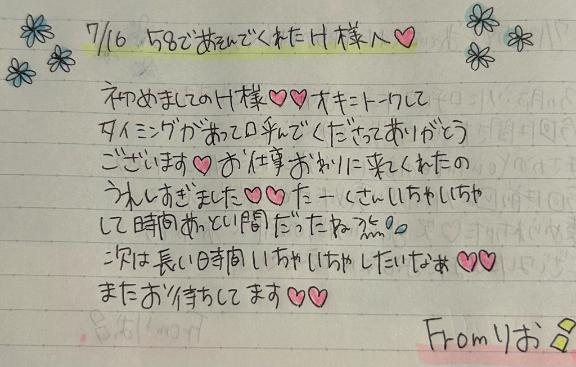 7/16 58であそんでくれたH様へ♡
初めましてのH様♡♡オキニトークして
タイミングがあって呼んでくださってありがとう
ございます♡お仕事おわりに来てくれたの
うれしすぎました♡♡たーくさんいちゃいちゃ
して時間あっとい間だったね
次は長い時間いちゃいちゃしたいなぁ♡♡
またお待ちしてます♡♡
Fromりお